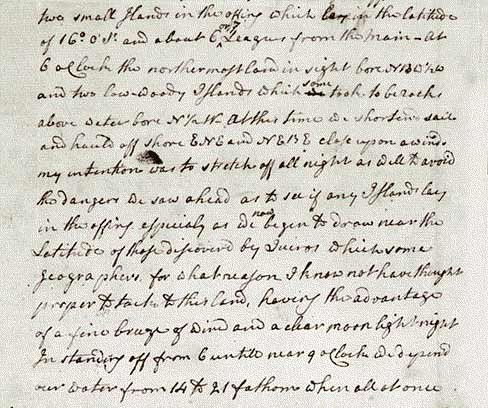 two small Islands in the offing which lay in the latitude
of 16° 0' S. and about 6 or 7 Leagues from the main - At
6 oClock the northermost land in sight bore NBW½W
and two low woody Islands which some took to be rocks
above water bore N½W At this time we shortend sail
and hauld off shore ENE and NEBE close upon a wind
my intention was to stretch off all night as well to avoid
the dangers we saw ahead as to see if any Islands lay
in the offing especialy as we now begin to draw near the
Latitude of those discover'd by Quiros which some
Geographers, for what reason I know not have thought
proper to tack to this land, having the advantage
of a fine breeze of wind and a clear moon light night
In standing off from 6 untill near 9 oClock we deepend
our water from 14 to 21 fathom when all at once